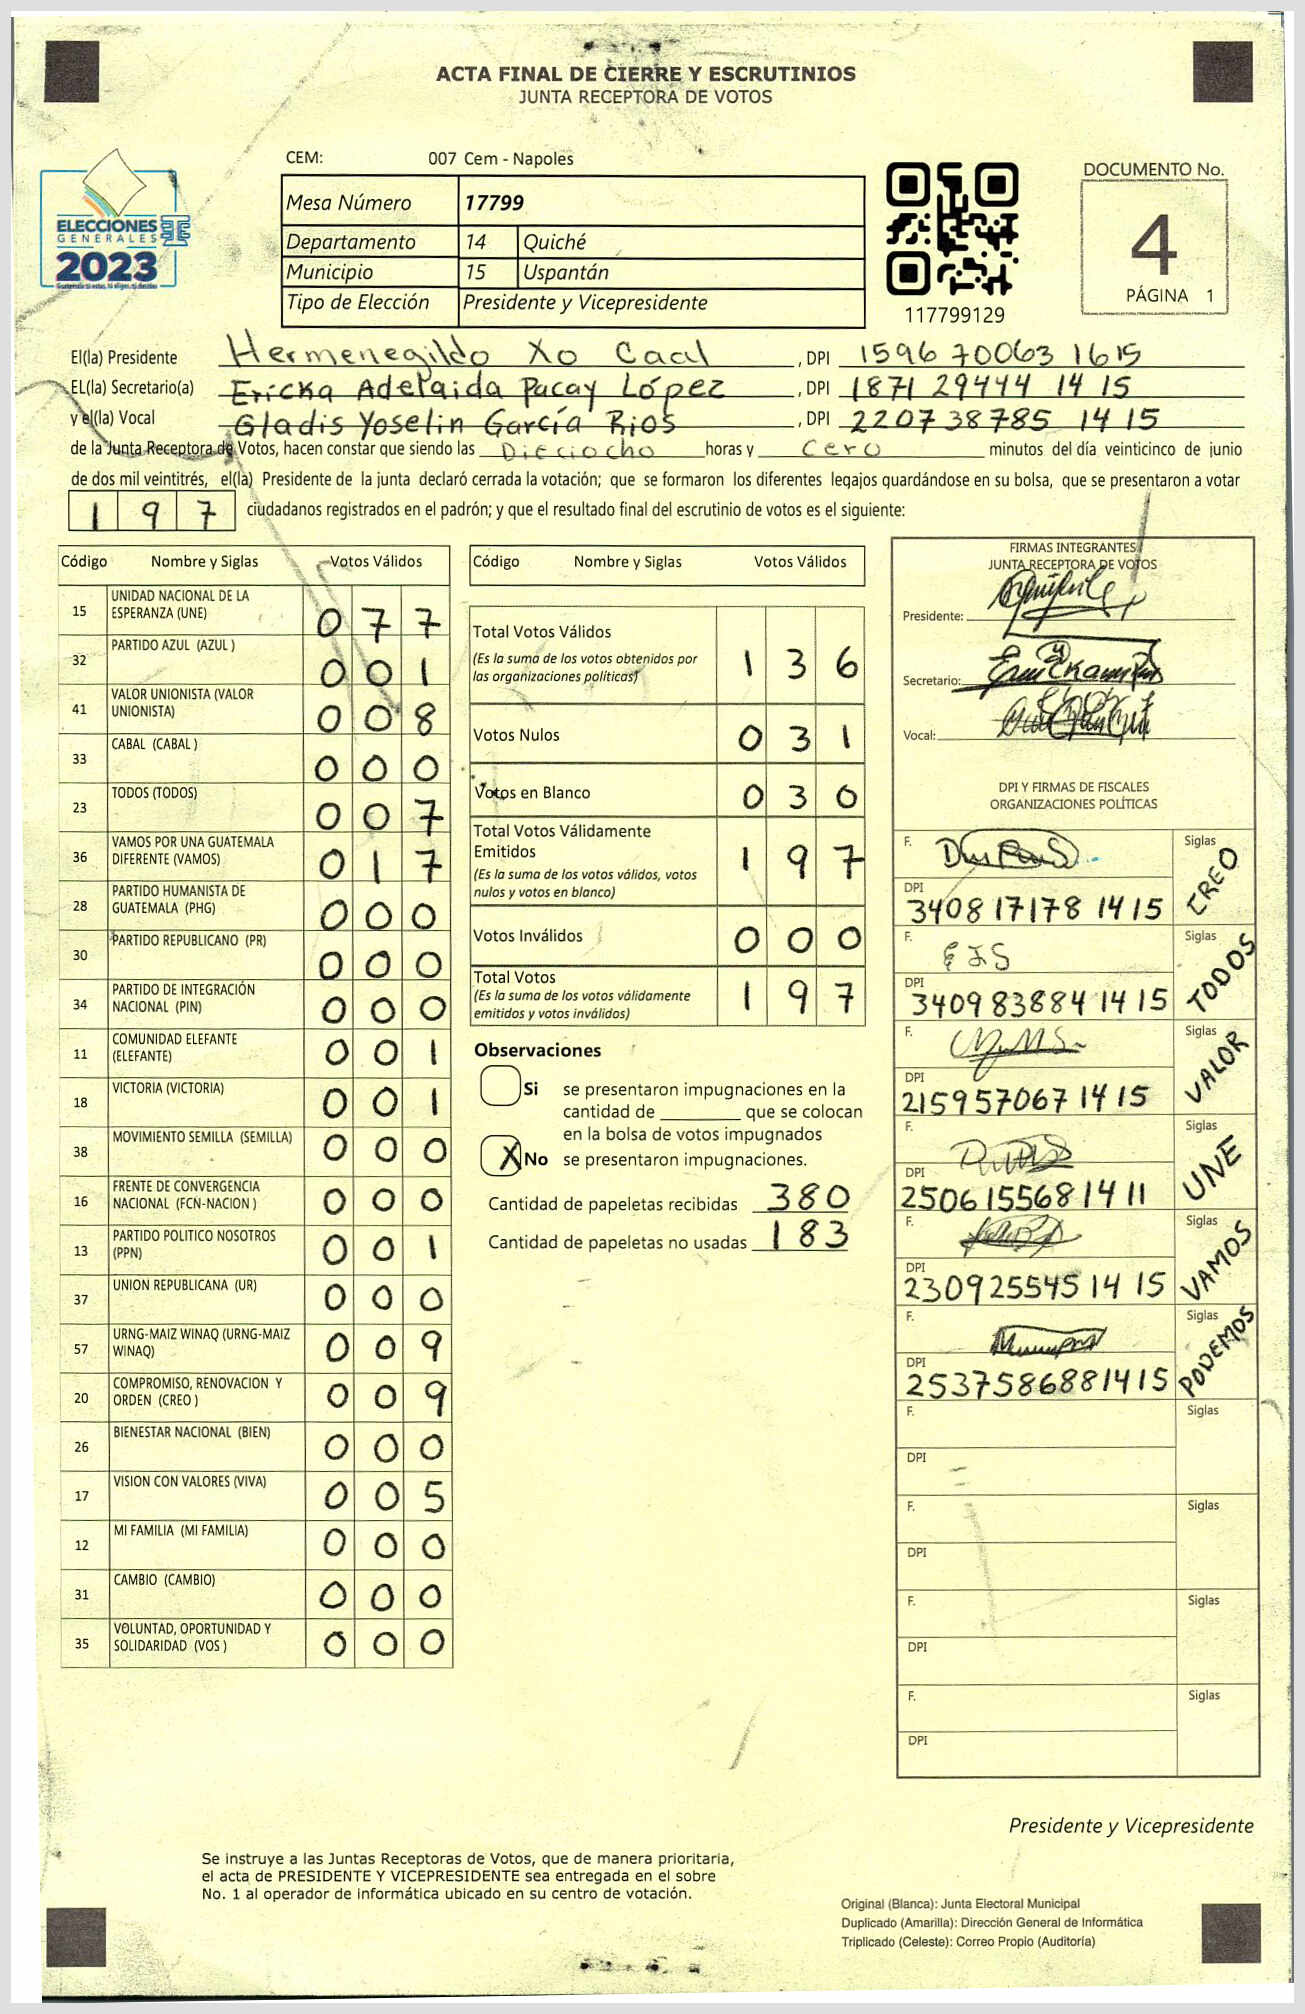 ACTA FINAL DE CIERRE Y ESCRUTINIOS
JUNTA RECEPTORA DE VOTOS
CEM: 007 Cem - Napoles
ELECCIONES
GENERALES
2023
Mesa Número 17799
Departamento 14 Quiché
Municipio 15 Uspantán
Tipo de Elección Presidente y Vicepresidente
117799129
DOCUMENTO No.
4
PÁGINA 1
El(la) Presidente Hermenegildo Xo Caal , DPI 1596 70063 1615
EL(la) Secretario(a) Ericka Adelaida Pacay López , DPI 1871 29444 14 15
y el(la) Vocal Gladis Yoselin García Rios , DPI 2207 38785 14 15
de la Junta Receptora de Votos, hacen constar que siendo las Dieciocho horas y cero minutos del día veinticinco de junio
de dos mil veintitrés, el(la) Presidente de la junta declaró cerrada la votación; que se formaron los diferentes legajos guardándose en su bolsa, que se presentaron a votar
1 9 7 ciudadanos registrados en el padrón; y que el resultado final del escrutinio de votos es el siguiente:
Código Nombre y Siglas Votos Válidos
15 UNIDAD NACIONAL DE LA ESPERANZA (UNE) 0 7 7
32 PARTIDO AZUL (AZUL ) 0 0 1
41 VALOR UNIONISTA (VALOR UNIONISTA) 0 0 8
33 CABAL (CABAL ) 0 0 0
23 TODOS (TODOS) 0 0 7
36 VAMOS POR UNA GUATEMALA DIFERENTE (VAMOS) 0 1 7
28 PARTIDO HUMANISTA DE GUATEMALA (PHG) 0 0 0
30 PARTIDO REPUBLICANO (PR) 0 0 0
34 PARTIDO DE INTEGRACIÓN NACIONAL (PIN) 0 0 0
11 COMUNIDAD ELEFANTE (ELEFANTE) 0 0 1
18 VICTORIA (VICTORIA) 0 0 1
38 MOVIMIENTO SEMILLA (SEMILLA) 0 0 0
16 FRENTE DE CONVERGENCIA NACIONAL (FCN-NACION ) 0 0 0
13 PARTIDO POLITICO NOSOTROS (PPN) 0 0 1
37 UNION REPUBLICANA (UR) 0 0 0
57 URNG-MAIZ WINAQ (URNG-MAIZ WINAQ) 0 0 9
20 COMPROMISO, RENOVACION Y ORDEN (CREO ) 0 0 9
26 BIENESTAR NACIONAL (BIEN) 0 0 0
17 VISION CON VALORES (VIVA) 0 0 5
12 MI FAMILIA (MI FAMILIA) 0 0 0
31 CAMBIO (CAMBIO) 0 0 0
35 VOLUNTAD, OPORTUNIDAD Y SOLIDARIDAD (VOS ) 0 0 0
Código Nombre y Siglas Votos Válidos
Total Votos Válidos 1 3 6
(Es la suma de los votos obtenidos por
las organizaciones políticas)
Votos Nulos 0 3 1
Votos en Blanco 0 3 0
Total Votos Válidamente
Emitidos 1 9 7
(Es la suma de los votos válidos, votos
nulos y votos en blanco)
Votos Inválidos 0 0 0
Total Votos 1 9 7
(Es la suma de los votos válidamente
emitidos y votos inválidos)
Observaciones
Si se presentaron impugnaciones en la
cantidad de ________ que se colocan
en la bolsa de votos impugnados
X No se presentaron impugnaciones.
Cantidad de papeletas recibidas 380
Cantidad de papeletas no usadas 183
FIRMAS INTEGRANTES
JUNTA RECEPTORA DE VOTOS
Presidente:
Secretario:
Vocal:
DPI Y FIRMAS DE FISCALES
ORGANIZACIONES POLÍTICAS
F. Siglas CREO
DPI 3408 17178 14 15
F. Siglas TODOS
DPI 3409 83884 14 15
F. Siglas VALOR
DPI 2159 57067 14 15
F. Siglas UNE
DPI 2506 15568 14 11
F. Siglas VAMOS
DPI 2309 25545 14 15
F. Siglas PODEMOS
DPI 2537 58688 14 15
F. Siglas
DPI
F. Siglas
DPI
F. Siglas
DPI
F. Siglas
DPI
Presidente y Vicepresidente
Se instruye a las Juntas Receptoras de Votos, que de manera prioritaria,
el acta de PRESIDENTE Y VICEPRESIDENTE sea entregada en el sobre
No. 1 al operador de informática ubicado en su centro de votación.
Original (Blanca): Junta Electoral Municipal
Duplicado (Amarilla): Dirección General de Informática
Triplicado (Celeste): Correo Propio (Auditoría)